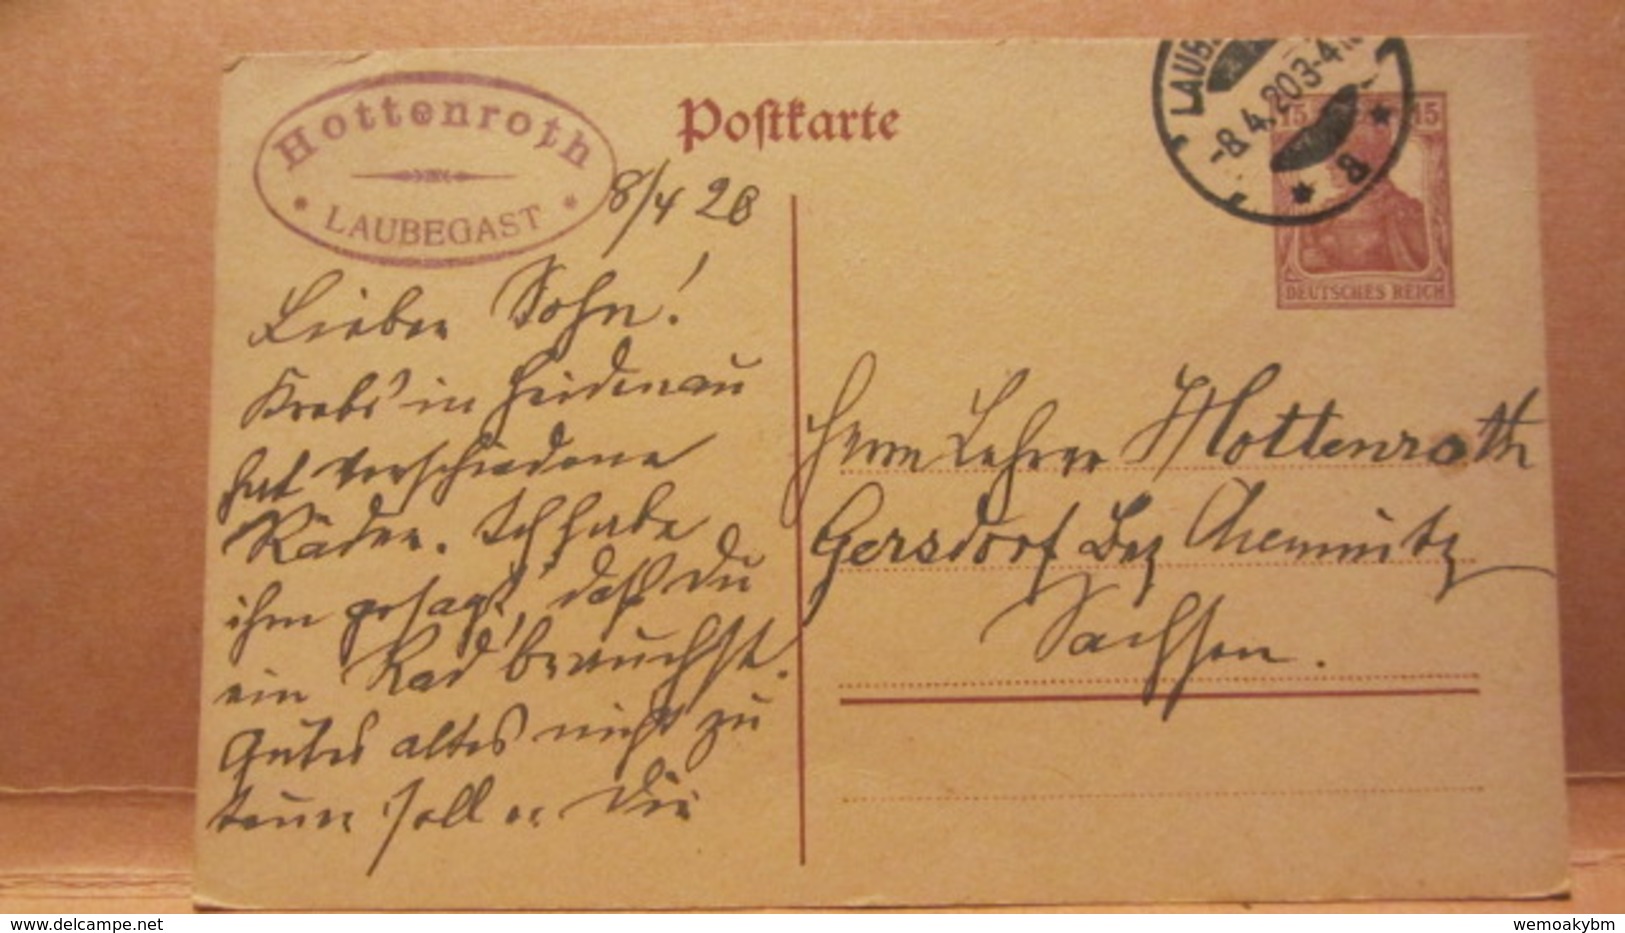 Hottenroth
LAUBEGAST
Postkarte
LAUB
-8.4.20 3-4
a
15 15
DEUTSCHES REICH
8/4 20
Lieber Sohn!
Krebs in Heidenau
hat verschiedene
Räder. Ich habe
ihm gesagt, daß Du
ein Rad brauchst.
Gutes altes nicht zu
teuer soll er Dir
Herrn Lehrer Hottenroth
Gersdorf Bez Chemnitz
Sachsen.
www.delcampe.net
wemoakybm